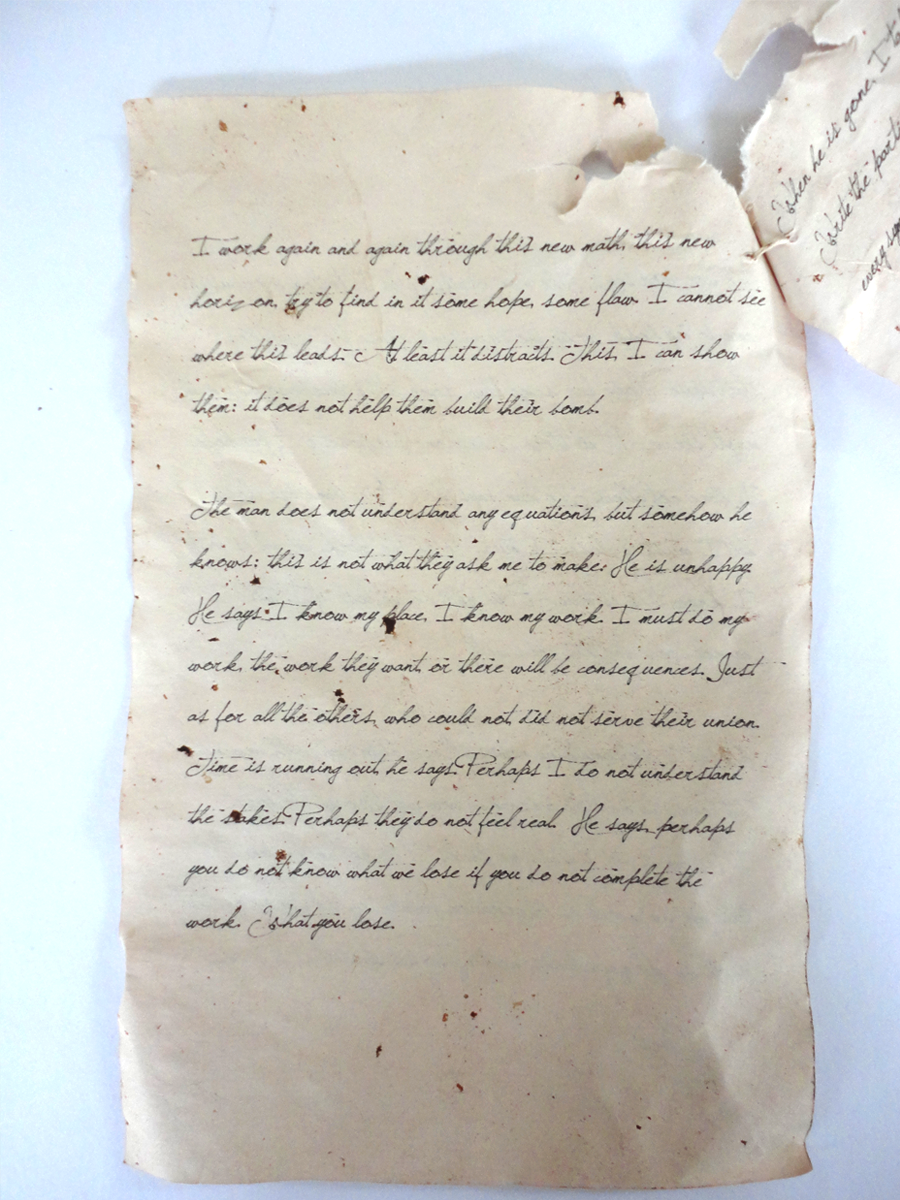 I work again and again through this new math, this new
horizon, try to find in it some hope, some flaw. I cannot see
where this leads. At least it distracts. This, I can show
them: it does not help them build their bomb.
The man does not understand any equations, but somehow he
knows: this is not what they ask me to make. He is unhappy.
He says I know my place, I know my work. I must do my
work, the work they want, or there will be consequences. Just
as for all the others, who could not, did not serve their union.
Time is running out, he says. Perhaps I do not understand
the stakes. Perhaps they do not feel real. He says, perhaps
you do not know what we lose if you do not complete the
work. What you lose.
When he is gone, I
Write the
every